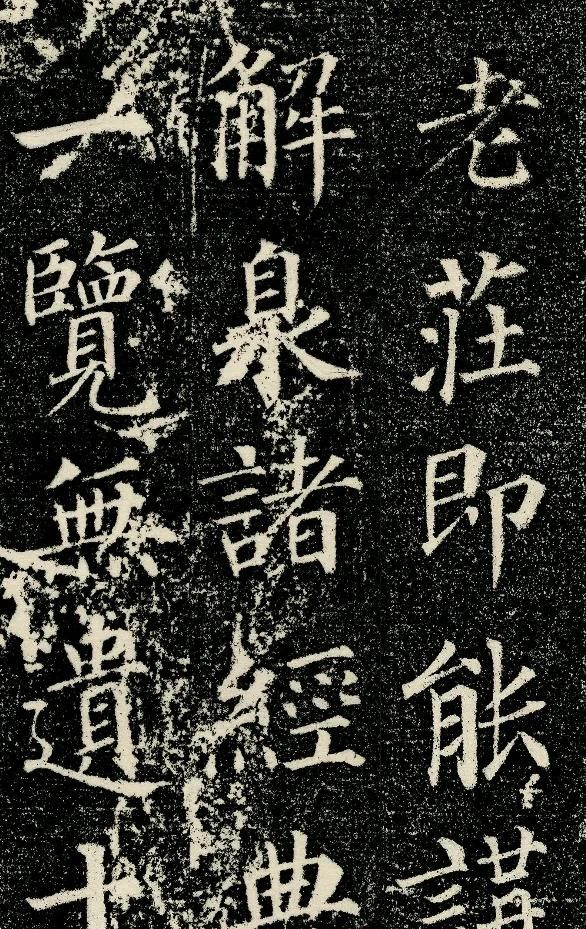 老莊即能講
解臮諸經典
一覽無遺